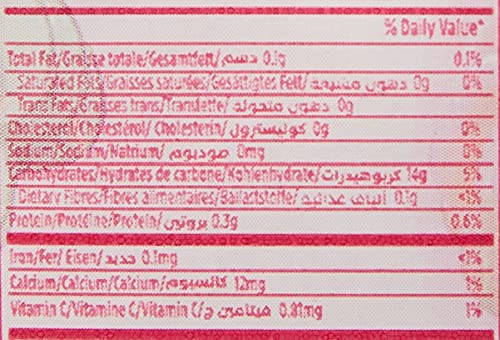 % Daily Value*
Total Fat/Graisse totale/Gesamtfett/ دسم 0.1g 0.1%
Saturated Fats/Graisses saturées/Gesättigtes Fett/ دهون مشبعة 0g 0%
Trans Fats/Graisses trans/Transfette/ دهون متحولة 0g
Cholesterol/Cholestérol/ Cholesterin/ كوليسترول 0g 0%
Sodium/Sodium/Natrium/ صوديوم 0mg 0%
Carbohydrates/Hydrates de carbone/Kohlenhydrate/ كربوهيدرات 14g 5%
Dietary Fibres/Fibres alimentaires/Ballaststoffe/ ألياف غذائية 0.1g <1%
Protein/Protéine/Protein/ بروتين 0.3g 0.6%
Iron/Fer/ Eisen/ حديد 0.1mg <1%
Calcium/Calcium/Calcium/ كالسيوم 12mg 1%
Vitamin C/Vitamine C/Vitamin C/ فيتامين ج 0.81mg 1%